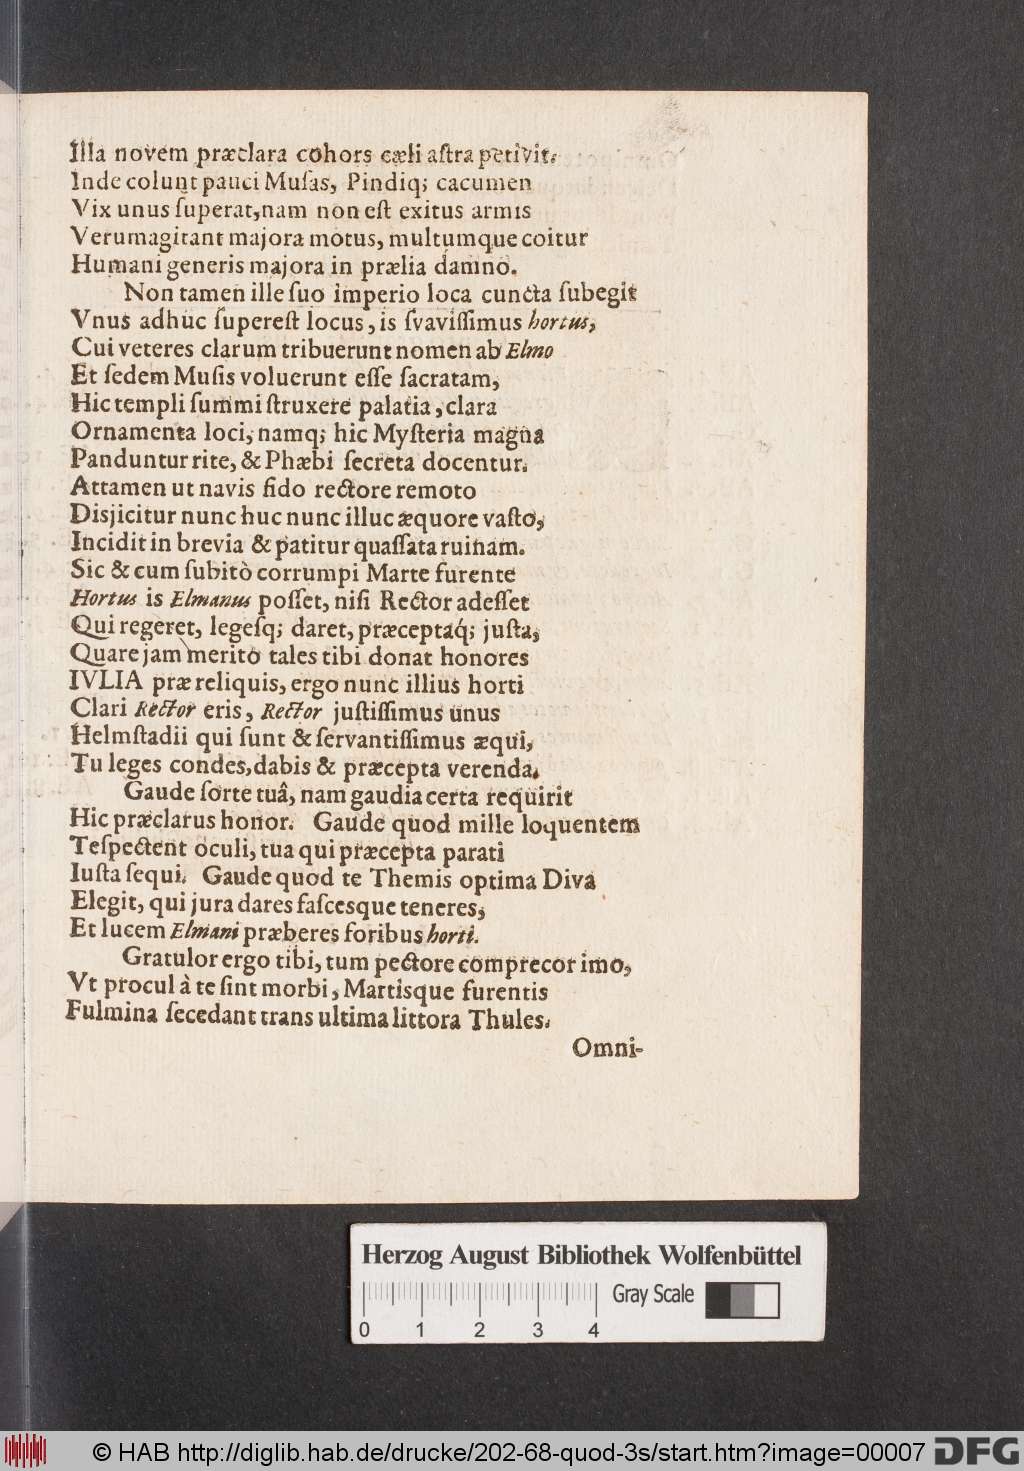 Illa novem præclara cohors cæli aſtra petivit.
Inde colunt pauci Muſas, Pindiq; cacumen
Vix unus ſuperat, nam non eſt exitus armis
Verum agitant majora motus, multumque coitur
Humani generis majora in prælia damno.
Non tamen ille ſuo imperio loca cuncta ſubegit
Vnus adhuc ſupereſt locus, is ſvaviſſimus hortus,
Cui veteres clarum tribuerunt nomen ab Elmo
Et ſedem Muſis voluerunt eſſe ſacratam,
Hic templi ſummi ſtruxere palatia, clara
Ornamenta loci, namq; hic Myſteria magna
Panduntur rite, & Phæbi ſecreta docentur.
Attamen ut navis fido rectore remoto
Disjicitur nunc huc nunc illuc æquore vaſto,
Incidit in brevia & patitur quaſſata ruinam.
Sic & cum ſubitò corrumpi Marte furente
Hortus is Elmanus poſſet, niſi Rector adeſſet
Qui regeret, legeſq; daret, præceptaq́; juſta,
Quare jam merito tales tibi donat honores
IVLIA præ reliquis, ergo nunc illius horti
Clari Rector eris, Rector juſtiſſimus unus
Helmſtadii qui ſunt & ſervantiſſimus æqui,
Tu leges condes, dabis & præcepta verenda.
Gaude ſorte tuâ, nam gaudia certa requirit
Hic præclarus honor. Gaude quod mille loquentem
Teſpectent oculi, tua qui præcepta parati
Iuſta ſequi. Gaude quod te Themis optima Diva
Elegit, qui jura dares faſcesque teneres,
Et lucem Elmani præberes foribus horti.
Gratulor ergo tibi, tum pectore comprecor imo,
Vt procul à te ſint morbi, Martisque furentis
Fulmina ſecedant trans ultima littora Thules.
Omni-
Herzog August Bibliothek Wolfenbüttel
Gray Scale
0 1 2 3 4
© HAB http://diglib.hab.de/drucke/202-68-quod-3s/start.htm?image=00007 DFG